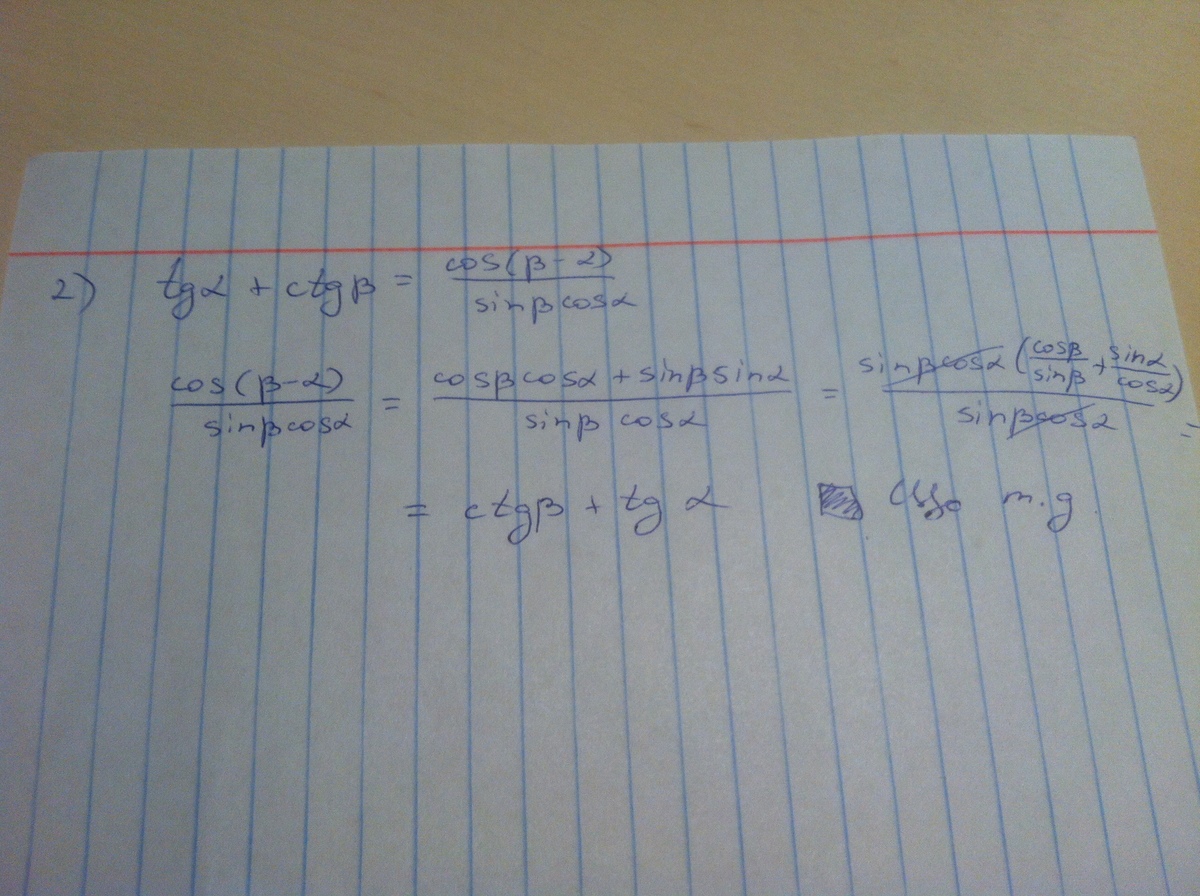 2) tgα + ctgβ = cos(β-α) / sinβcosα
cos(β-α) / sinβcosα = cosβcosα + sinβsinα / sinβ cosα = sinβcosα (cosβ/sinβ + sinα/cosα) / sinβcosα =
= ctgβ + tg α m.g